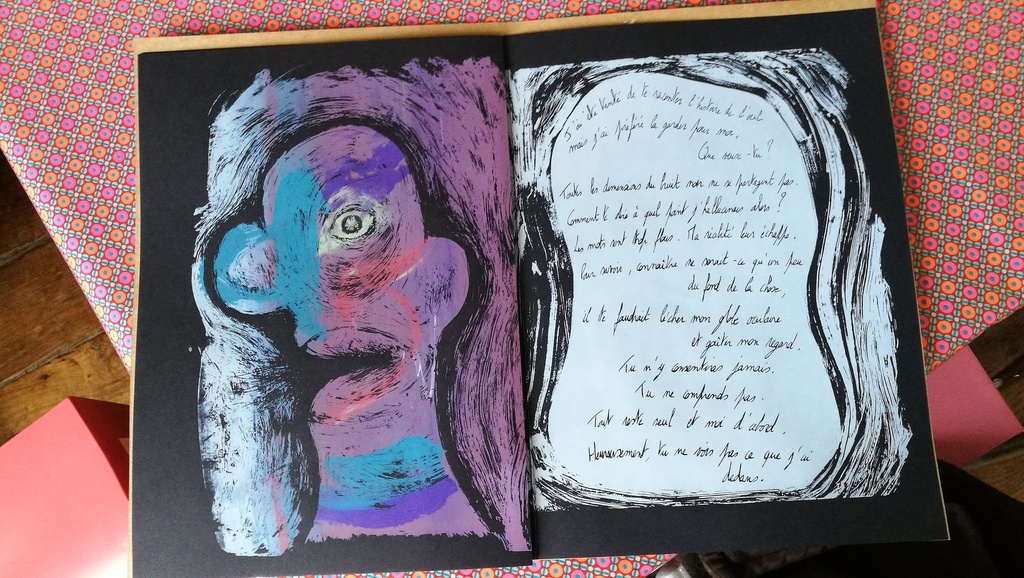 J'ai été tenté de te raconter l'histoire de l'œil
mais j'ai préféré la garder pour moi,
Que veux-tu?
Toutes les dimensions du fruit mon ne se partagent pas.
Comment te dire à quel point j'hallucinais alors ?
Les mots sont trop flous. Ma réalité leur échappe.
Pour savoir, connaître ne serait-ce qu'un peu
du fond de la chose,
il te faudrait lécher mon globe oculaire
et goûter mon regard.
Tu n'y consentiras jamais.
Tu ne comprends pas.
Tout reste seul et moi d'abord.
Heureusement, tu ne vois pas ce que j'ai
dedans.